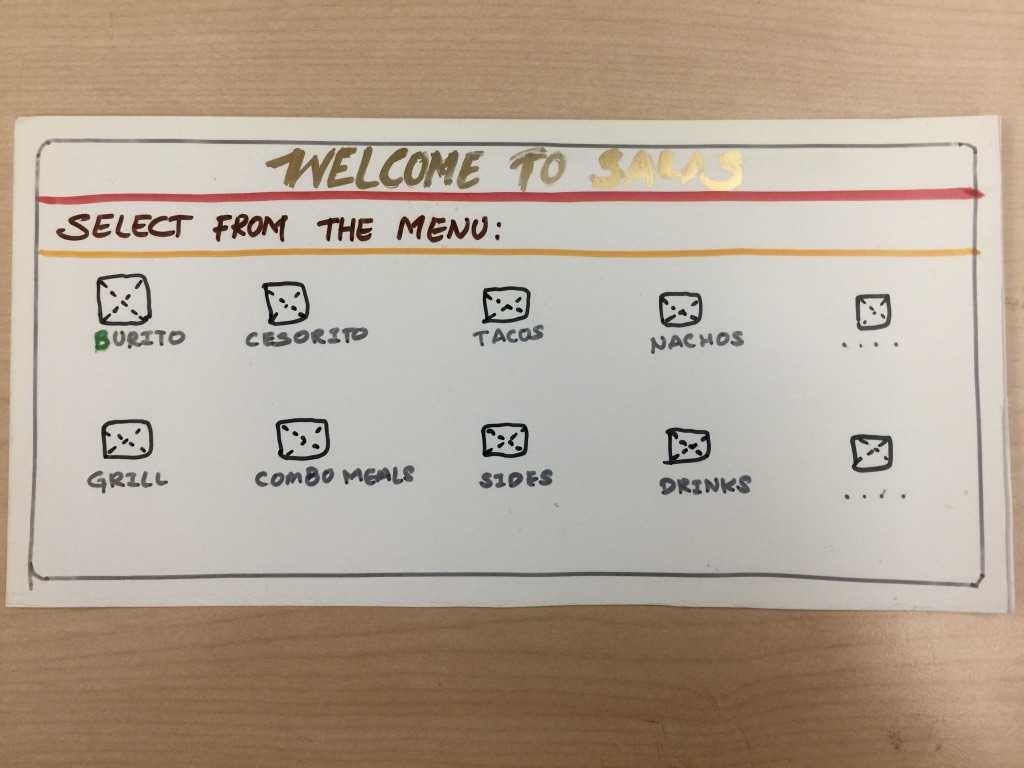 WELCOME TO SALIS
SELECT FROM THE MENU:
BURITO CESORITO TACOS NACHOS ....
GRILL COMBO MEALS SIDES DRINKS ....